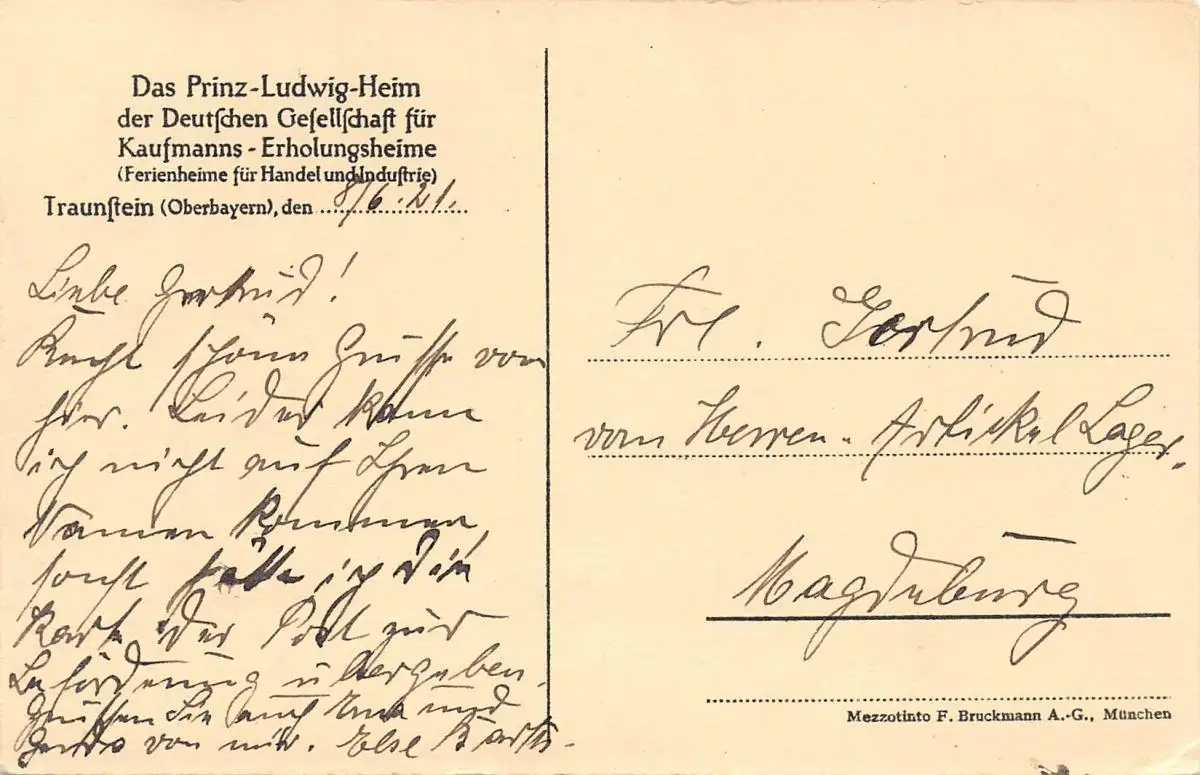 Das Prinz-Ludwig-Heim
der Deutſchen Geſellſchaft für
Kaufmanns-Erholungsheime
(Ferienheime für Handel und Induſtrie)
Traunſtein (Oberbayern), den 8/6.21.
Liebe Gertrud!
Recht schöne Grüsse von
hier. Leider kann
ich nicht auf Ihren
Namen kommen,
sonst hätte ich die
Karte der Post zur
Beförderung übergeben.
Grüssen Sie auch und
von mir. Else
Frl. Gertrud
vom Herren-Artickel Lager.
Magdeburg
Mezzotinto F. Bruckmann A.-G., München